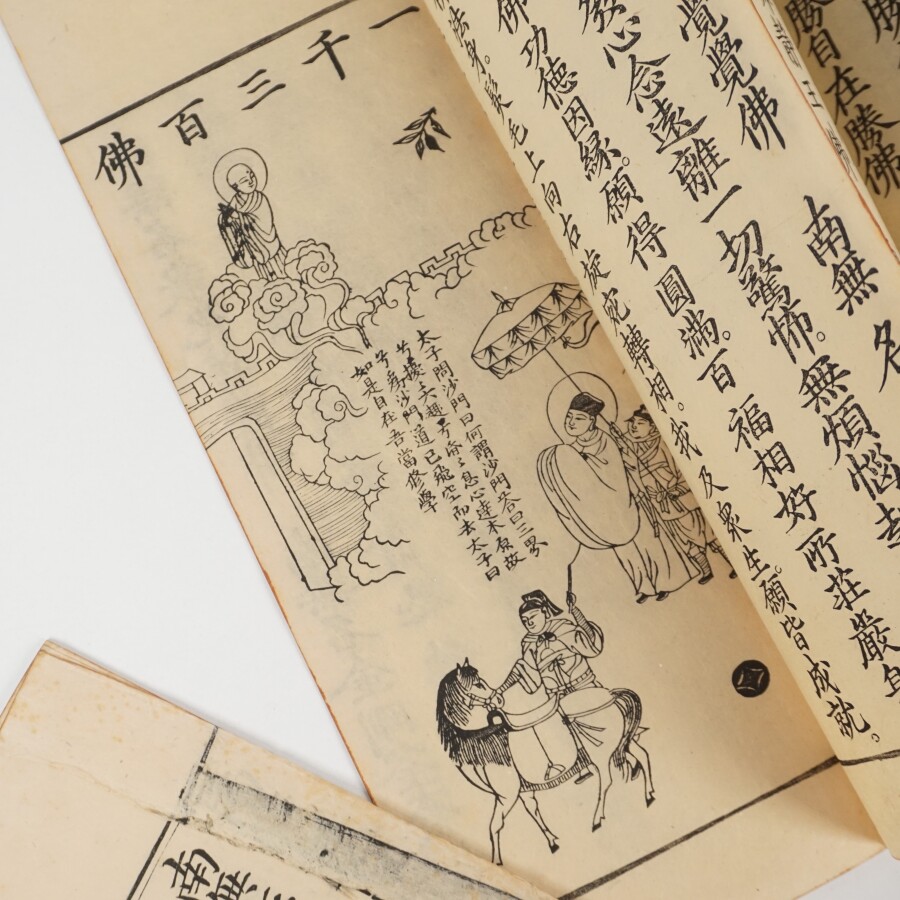 勝自在勝佛
覺覺佛　南無名
發心念遠離一切驚怖。無煩惱
佛功德因緣。願得圓滿。百福相好所莊嚴身
法身。髮毛上向右旋宛轉相。我及衆生。願皆成就。
一千三百佛
太子問沙門曰何謂沙門答曰三界
兮擾〻六趣兮昏〻息心達本原故
号為沙門道已飛空而去太子曰
如是自在吾當修學
南無